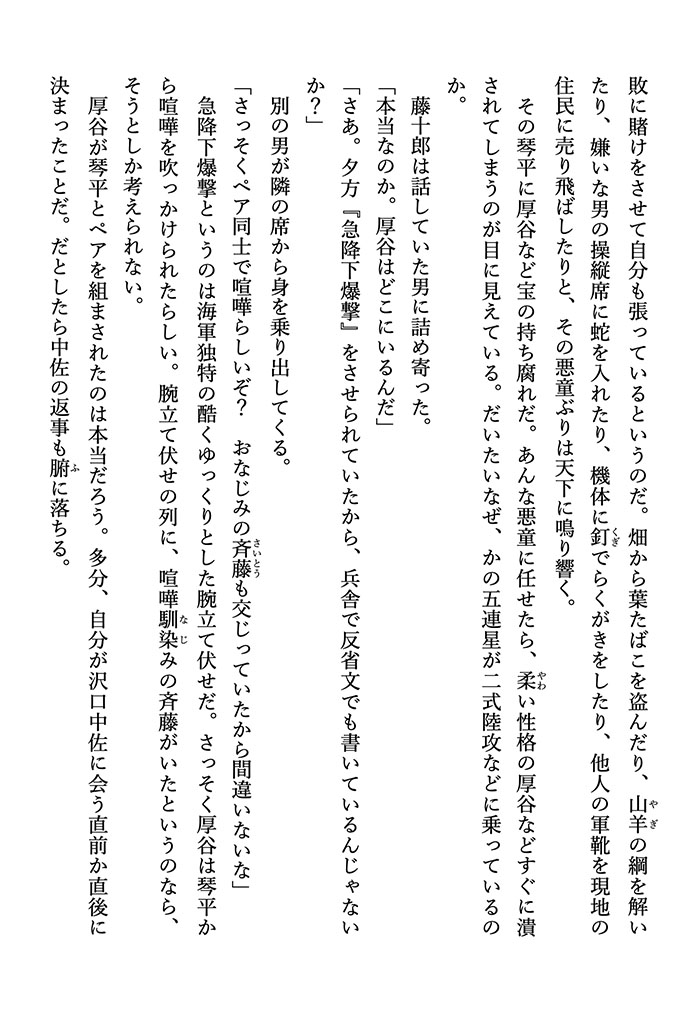 敗に賭けをさせて自分も張っているというのだ。畑から葉たばこを盗んだり、山羊の綱を解い
たり、嫌いな男の操縦席に蛇を入れたり、機体に釘でらくがきをしたり、他人の軍靴を現地の
住民に売り飛ばしたりと、その悪童ぶりは天下に鳴り響く。
　その琴平に厚谷など宝の持ち腐れだ。あんな悪童に任せたら、柔い性格の厚谷などすぐに潰
されてしまうのが目に見えている。だいたいなぜ、かの五連星が二式陸攻などに乗っているの
か。
　藤十郎は話していた男に詰め寄った。
「本当なのか。厚谷はどこにいるんだ」
「さあ。夕方『急降下爆撃』をさせられていたから、兵舎で反省文でも書いているんじゃない
か？」
　別の男が隣の席から身を乗り出してくる。
「さっそくペア同士で喧嘩らしいぞ？　おなじみの斉藤も交じっていたから間違いないな」
　急降下爆撃というのは海軍独特の酷くゆっくりとした腕立て伏せだ。さっそく厚谷は琴平か
ら喧嘩を吹っかけられたらしい。腕立て伏せの列に、喧嘩馴染みの斉藤がいたというのなら、
そうとしか考えられない。
　厚谷が琴平とペアを組まされたのは本当だろう。多分、自分が沢口中佐に会う直前か直後に
決まったことだ。だとしたら中佐の返事も腑に落ちる。